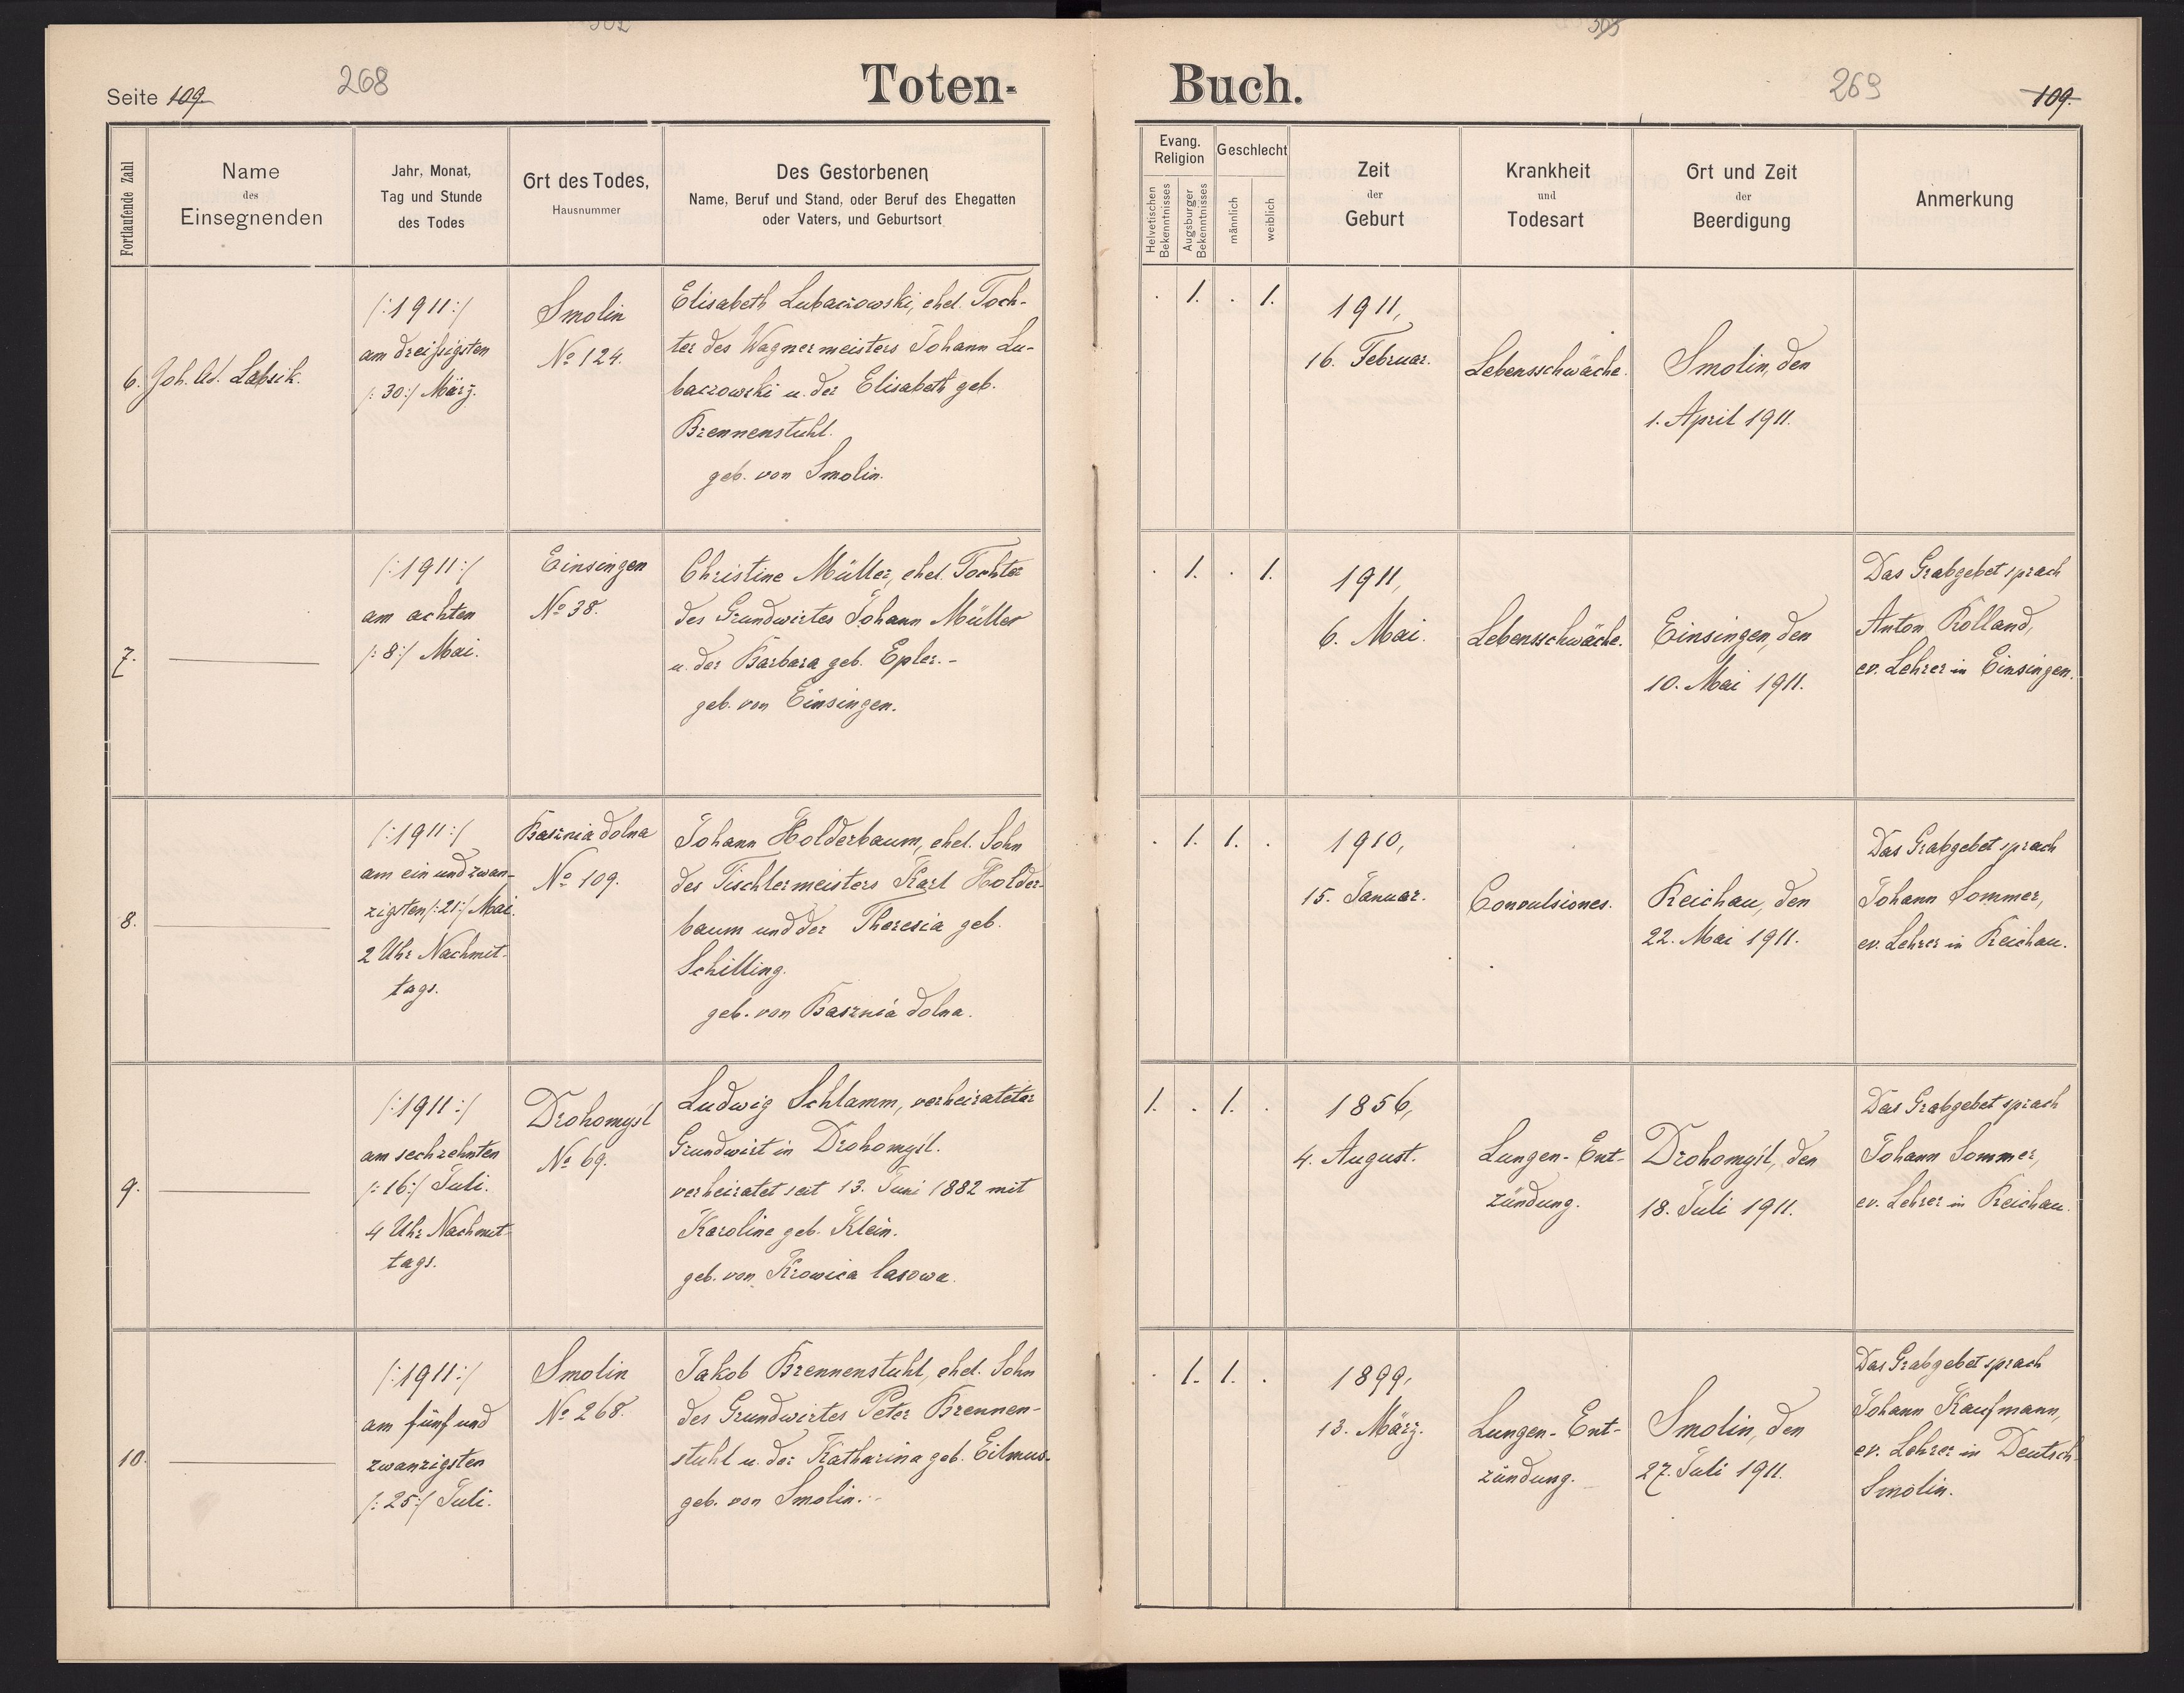 302
305
Seite 109.
268
Toten-
Buch.
269
109.
Fortlaufende Zahl
Name
des
Einsegnenden
Jahr, Monat,
Tag und Stunde
des Todes
Ort des Todes,
Hausnummer
Des Gestorbenen
Name, Beruf und Stand, oder Beruf des Ehegatten
oder Vaters, und Geburtsort
Evang.
Religion
Helvetischen
Bekenntnisses
Augsburger
Bekenntnisses
Geschlecht
männlich
weiblich
Zeit
der
Geburt
Krankheit
und
Todesart
Ort und Zeit
der
Beerdigung
Anmerkung
6.
Joh. Ad. Labsik.
/:1911:/
am dreißigsten
/:30:/ März.
Smolin
No 124.
Elisabeth Lubaczowski, ehel. Toch-
ter des Wagnermeisters Johann Lu-
baczowski u. der Elisabeth geb.
Brennenstuhl.
geb. von Smolin.
. 1. . 1.
1911,
16. Februar.
Lebensschwäche.
Smolin, den
1. April 1911.
7.
/:1911:/
am achten
/:8:/ Mai.
Einsingen
No 38.
Christine Müller, ehel. Tochter
des Grundwirtes Johann Müller
u. der Barbara geb. Epler.-
geb. von Einsingen.
. 1. . 1.
1911,
6. Mai.
Lebensschwäche.
Einsingen, den
10. Mai 1911.
Das Grabgebet sprach
Anton Rolland,
ev. Lehrer in Einsingen.
8.
/:1911:/
am ein und zwan-
zigsten /:21:/ Mai.
2 Uhr Nachmit-
tags.
Basznia dolna
No 109.
Johann Holderbaum, ehel. Sohn
des Tischlermeisters Karl Holder-
baum und der Theresia geb.
Schilling.
geb. von Basznia dolna.
. 1. 1. .
1910,
15. Januar.
Convulsiones.
Reichau, den
22. Mai 1911.
Das Grabgebet sprach
Johann Sommer,
ev. Lehrer in Reichau.
9.
/:1911:/
am sechzehnten
/:16:/ Juli.
4 Uhr Nachmit-
tags.
Drohomyśl
No 69.
Ludwig Schlamm, verheirateter
Grundwirt in Drohomyśl.
verheiratet seit 13. Juni 1882 mit
Karoline geb. Klein.
geb. von Krowica lasowa.
1. . 1. .
1856,
4. August.
Lungen-Ent-
zündung.
Drohomyśl, den
18. Juli 1911.
Das Grabgebet sprach
Johann Sommer,
ev. Lehrer in Reichau.
10.
/:1911:/
am fünf und
zwanzigsten
/:25:/ Juli.
Smolin
No 268.
Jakob Brennenstuhl, ehel. Sohn
des Grundwirtes Peter Brennen-
stuhl u. der Katharina geb. Eilmus.
geb. von Smolin.-
. 1. 1. .
1899,
13. März.
Lungen-Ent-
zündung.
Smolin, den
27. Juli 1911.
Das Grabgebet sprach
Johann Kaufmann,
ev. Lehrer in Deutsch-
Smolin.